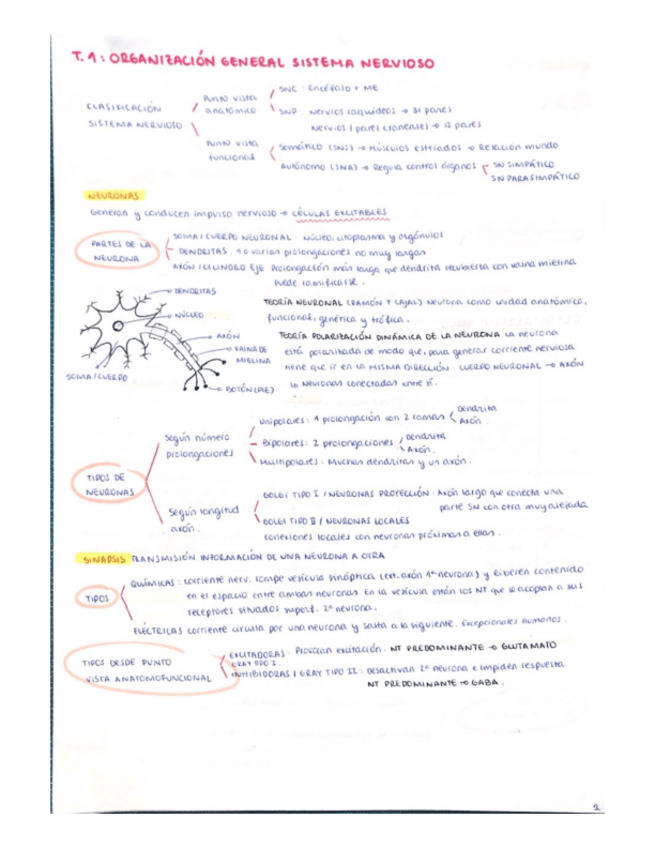 T.1: ORGANIZACIÓN GENERAL SISTEMA NERVIOSO
CLASIFICACIÓN
SISTEMA NERVIOSO
Punto vista
anatómico
SNC: Encéfalo + ME
SNP: Nervios raquídeos → 31 pares
Nervios / pares craneales → 12 pares
Punto vista
funcional
Somático (SNS) → Músculos estriados → Relación mundo
Autónomo (SNA) → Regula control órganos
SN SIMPÁTICO
SN PARASIMPÁTICO
NEURONAS
Generan y conducen impulso nervioso → CÉLULAS EXCITABLES
PARTES DE LA
NEURONA
SOMA / CUERPO NEURONAL Núcleo, citoplasma y orgánulos
DENDRITAS. 1 o varias prolongaciones no muy largas
AXÓN / CILINDRO EJE Prolongación más larga que dendrita recubierta con vaina mielina
puede ramificarse.
DENDRITAS
NÚCLEO
AXÓN
VAINA DE
MIELINA
BOTÓN (PIE)
SOMA / CUERPO
TEORÍA NEURONAL (RAMÓN Y CAJAL) Neurona como unidad anatómica,
funcional, genética y trófica.
TEORÍA POLARIZACIÓN DINÁMICA DE LA NEURONA La neurona
está polarizada de modo que, para generar corriente nerviosa
tiene que ir en la MISMA DIRECCIÓN. CUERPO NEURONAL → AXÓN
↳ Neuronas conectadas entre sí.
TIPOS DE
NEURONAS
Según número
prolongaciones
Unipolares: 1 prolongación con 2 ramas
Dendrita
Axón.
Bipolares: 2 prolongaciones
Dendrita
Axón.
Multipolares: Muchas dendritas y un axón.
Según longitud
axón.
GOLGI TIPO I / NEURONAS PROYECCIÓN: Axón largo que conecta una
parte SN con otra muy alejada
GOLGI TIPO II / NEURONAS LOCALES
conexiones locales con neuronas próximas a ellas.
SINAPSIS TRANSMISIÓN INFORMACIÓN DE UNA NEURONA A OTRA
TIPOS
QUÍMICAS: corriente nerv. rompe vesícula sináptica (ext. axón 1ª neurona) y liberen contenido
en el espacio entre ambas neuronas En la vesícula están los NT que se acoplan a sus
receptores situados superf. 2ª neurona.
ELÉCTRICAS corriente circula por una neurona y salta a la siguiente. Excepcionales humanos.
TIPOS DESDE PUNTO
VISTA ANATOMOFUNCIONAL
EXCITADORAS: Provocan excitación. NT PREDOMINANTE → GLUTAMATO
GRAY TIPO I.
INHIBIDORAS / GRAY TIPO II: Desactivan 2ª neurona e impiden respuesta
NT PREDOMINANTE → GABA.